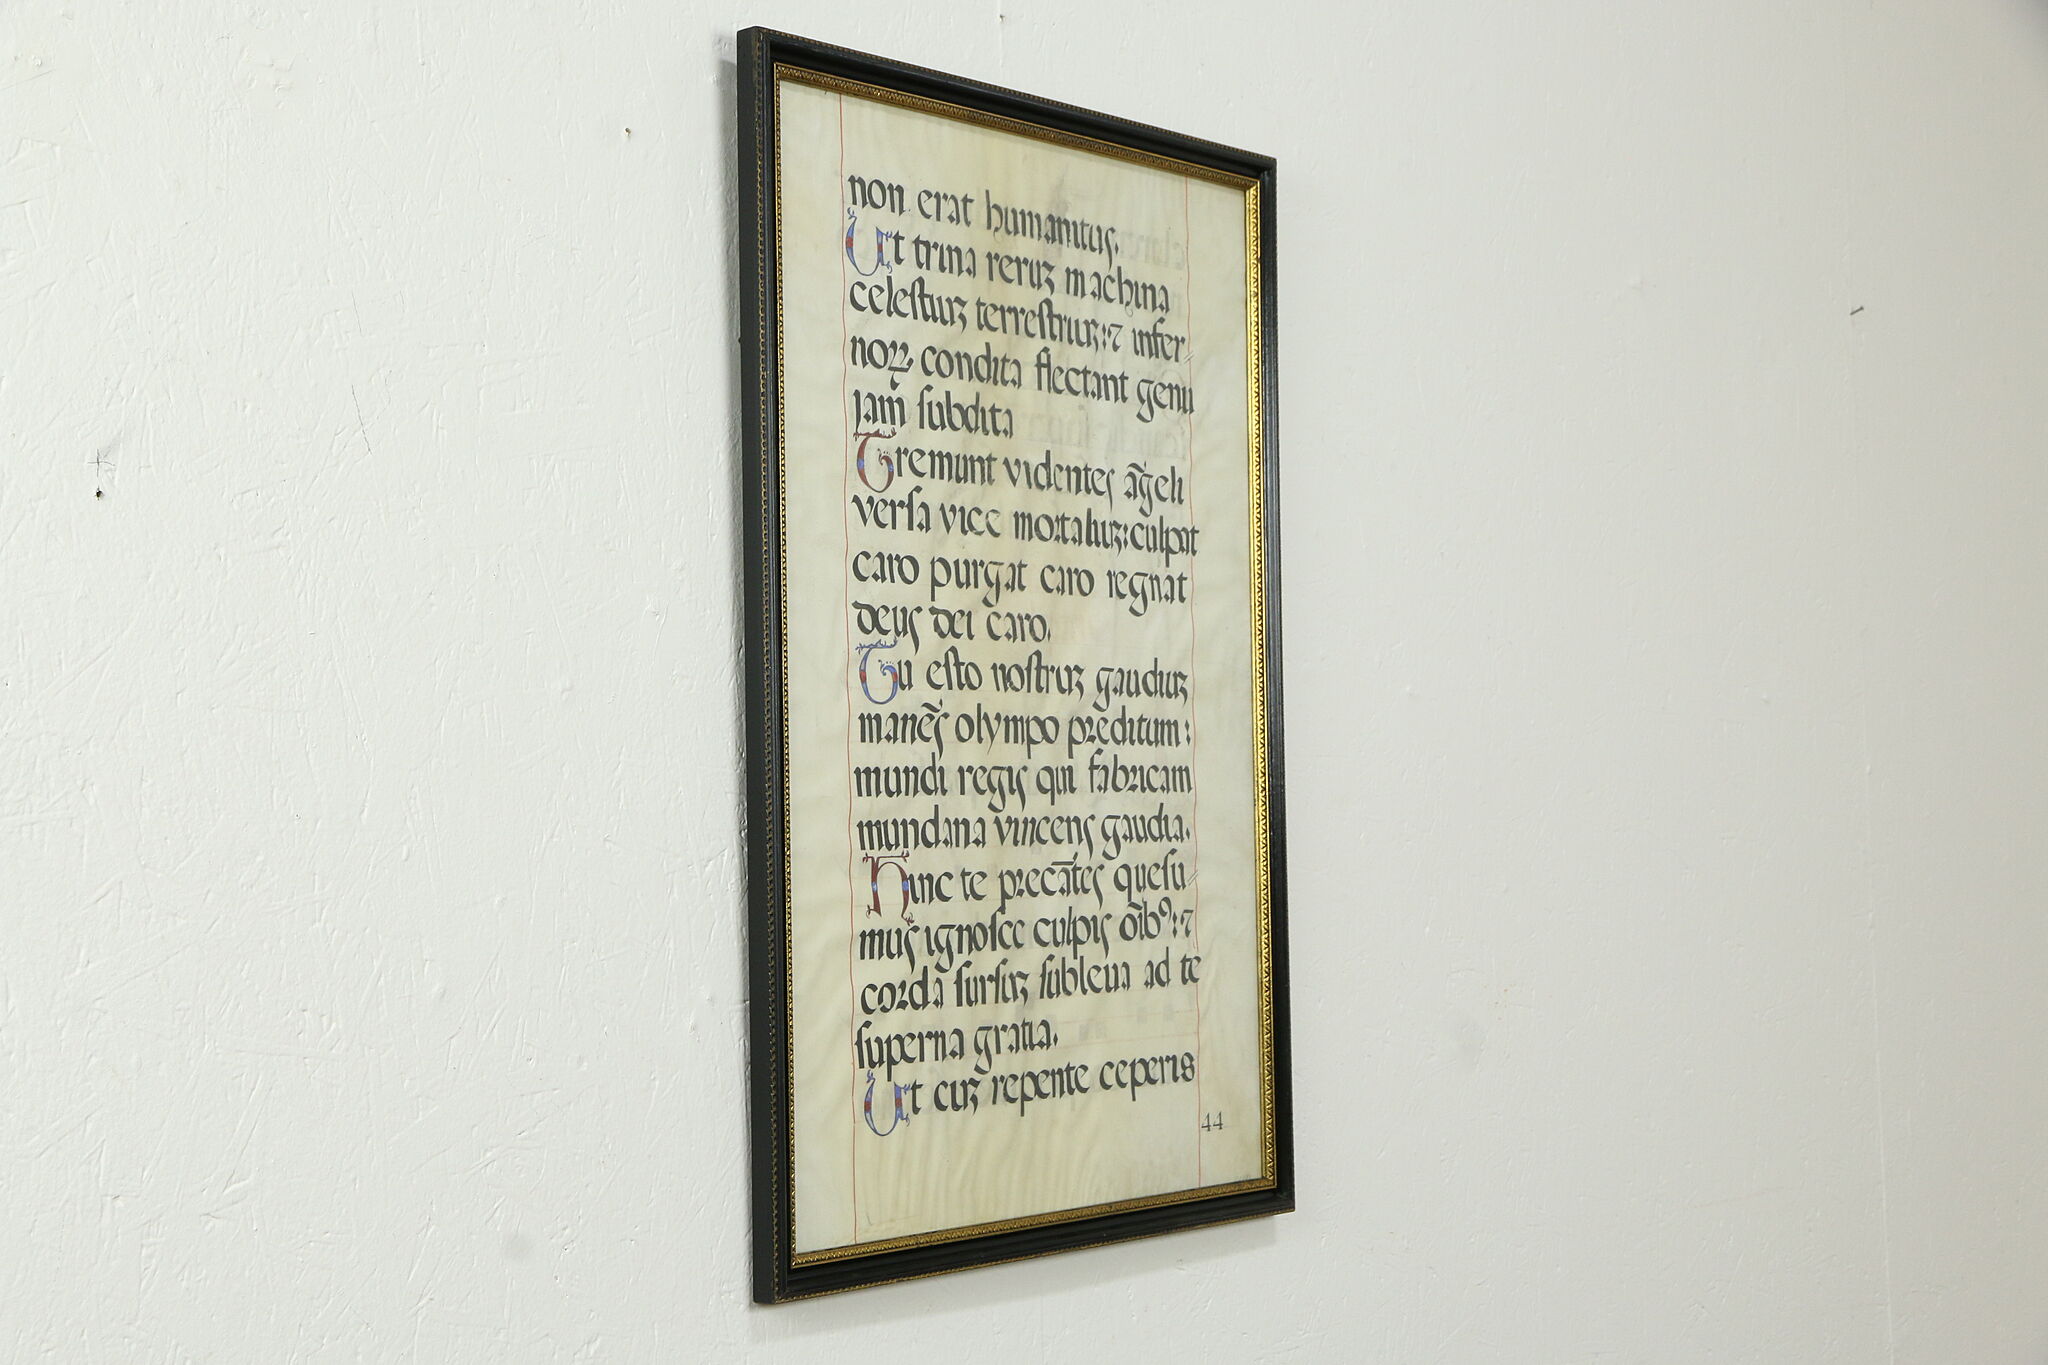 non erat humanitus.
Ut trina reruꝫ machina
celeſtiuꝫ terreſtriuꝫ:⁊ infer⸗
noꝝ condita flectant genu
jam̄ ſubdita
Tremunt videntes āgeli
verſa vice moꝛtaliuꝫ:culpat
caro purgat caro regnat
deus dei caro.
Tu eſto noſtruꝫ gaudiuꝫ
manēs olympo pꝛeditum:
mundi regis qui fabꝛicam
mundana vincens gaudia.
Hinc te pꝛecātes queſu⸗
mus ignoſce culpis oīb⁹:⁊
coꝛda ſurſuꝫ ſubleua ad te
ſuperna gratia.
Ut cuꝫ repente ceperis
44